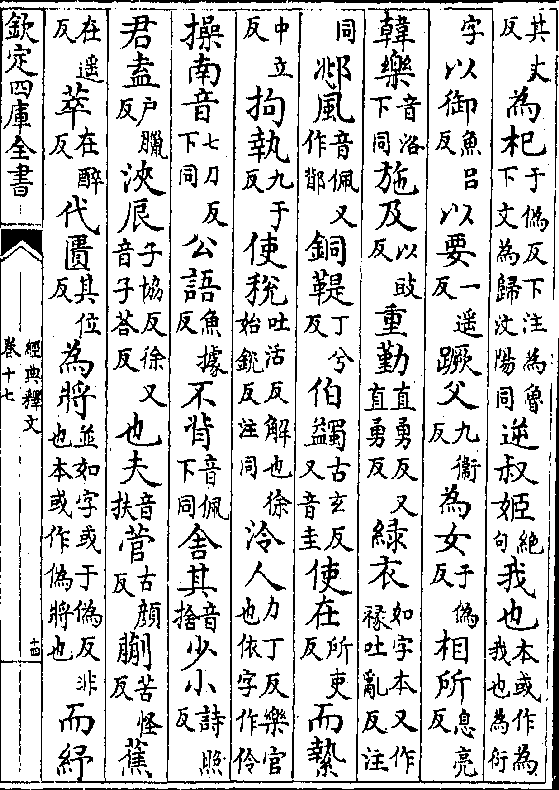 其丈反為杞于偽反下注為魯下文為歸汶陽同逆叔姬絶句我也本或作為我也為衍
字以御魚呂反以要一遥反蹶父九衛反為女于偽反相所息亮反
韓樂音洛下同施及以豉反重勤直勇反又直勇反緑衣如字本又作褖吐亂反注
同邶風音佩又作鄁銅鞮丁兮反伯蠲古玄反又音圭使在所吏反而縶
中立反拘執九于反使税吐活反解也徐始鋭反注同泠人力丁反樂官也依字作伶
操南音七刀反下同公語魚據反不背音佩下同舍其音捨少小詩照反
君盍户臘反浹辰子協反徐又音子荅反也夫音扶菅古顔反蒯苦怪反蕉
在遥反萃在醉反代匱其位反為將並如字或于偽反非也本或作偽將也而紓
欽定四庫全書
經典釋文
卷十七
十四